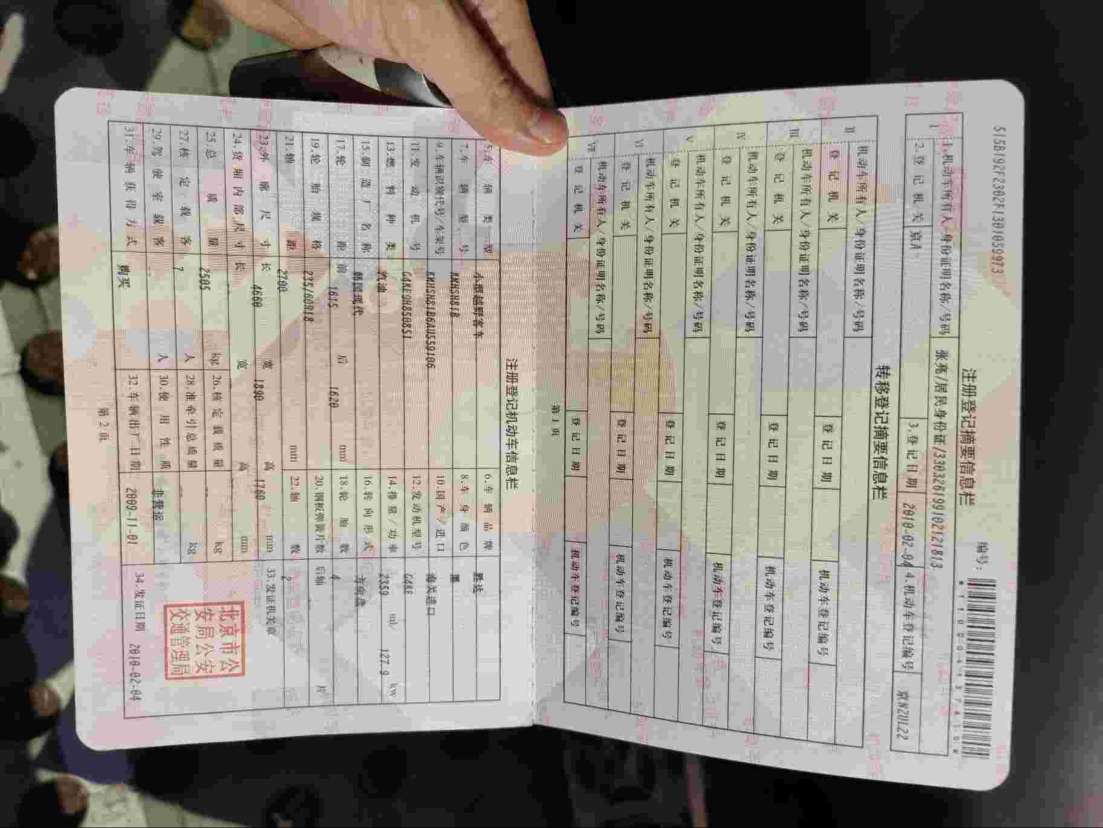 515B192F2302F1301059973
编号:
注册登记摘要信息栏
I
1.机动车所有人/身份证明名称/号码 张亮/居民身份证/330326199102121813
2.登记机关 京A 3.登记日期 2010-02-04 4.机动车登记编号 京NZUL22
转移登记摘要信息栏
II
机动车所有人/身份证明名称/号码
登记机关 登记日期 机动车登记编号
III
机动车所有人/身份证明名称/号码
登记机关 登记日期 机动车登记编号
IV
机动车所有人/身份证明名称/号码
登记机关 登记日期 机动车登记编号
V
机动车所有人/身份证明名称/号码
登记机关 登记日期 机动车登记编号
VI
机动车所有人/身份证明名称/号码
登记机关 登记日期 机动车登记编号
VII
机动车所有人/身份证明名称/号码
登记机关 登记日期 机动车登记编号
第1页
注册登记机动车信息栏
5.车辆类型 小型越野客车 6.车辆品牌 胜达
7.车辆型号 KMHSH81B 8.车身颜色 黑
9.车辆识别代号/车架号 KMHSH81B6AU559106 10.国产/进口 海关进口
11.发动机号 G4KE9H850851 12.发动机型号 G4KE
13.燃料种类 汽油 14.排量/功率 2359 ml/ 127.9 kw
15.制造厂名称 韩国现代 16.转向形式 方向盘
17.轮距 前 1615 后 1620 mm 18.轮胎数 4
19.轮胎规格 235/60R18 20.钢板弹簧片数 后轴 片
21.轴距 2700 mm 22.轴数 2
23.外廓尺寸 长 4660 宽 1890 高 1760 mm 33.发证机关章
24.货厢内部尺寸 长 宽 高 mm
25.总质量 2505 kg 26.核定载质量 kg
27.核定载客 7 人 28.准牵引总质量 kg
29.驾驶室载客 人 30.使用性质 非营运
31.车辆获得方式 购买 32.车辆出厂日期 2009-11-01 34.发证日期 2010-02-04
北京市公
安局公安
交通管理局
第2页